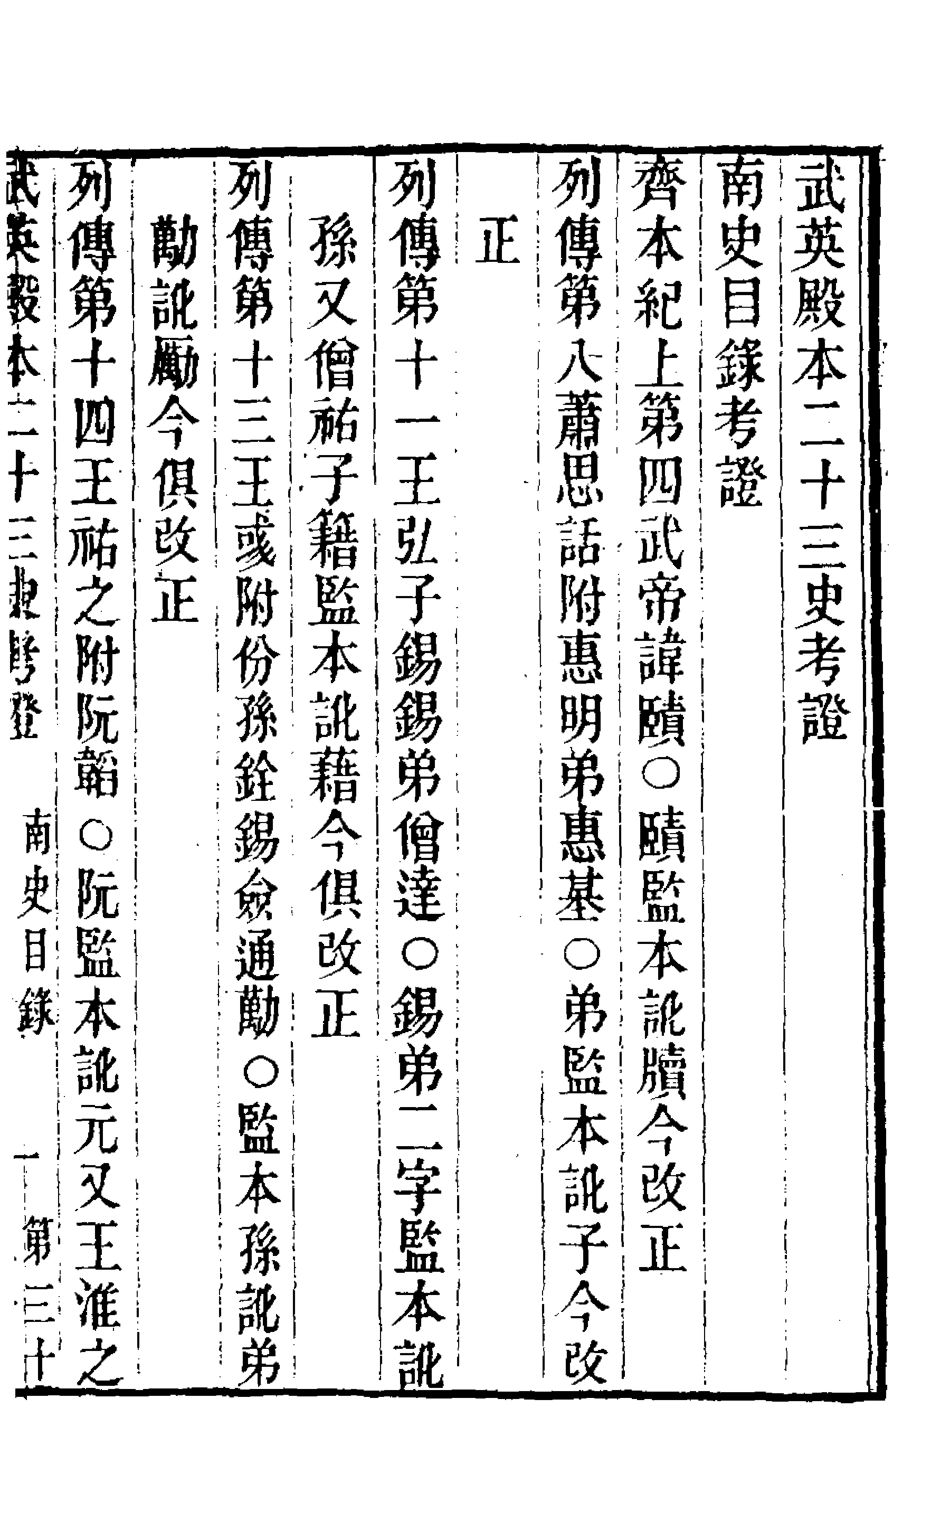 武英殿本二十三史考證
南史目錄考證
齊本紀上第四武帝諱賾○賾監本訛牘今改正
列傳第八蕭思話附惠明弟惠基○弟監本訛子今改
正
列傳第十一王弘子錫錫弟僧達○錫弟二字監本訛
孫又僧祐子籍監本訛藉今俱改正
列傳第十三王彧附份孫銓錫僉通勱○監本孫訛弟
勱訛勵今俱改正
列傳第十四王祐之附阮韜○阮監本訛元又王淮之
武英殿本二十三史考證　南史目錄　一　第三十